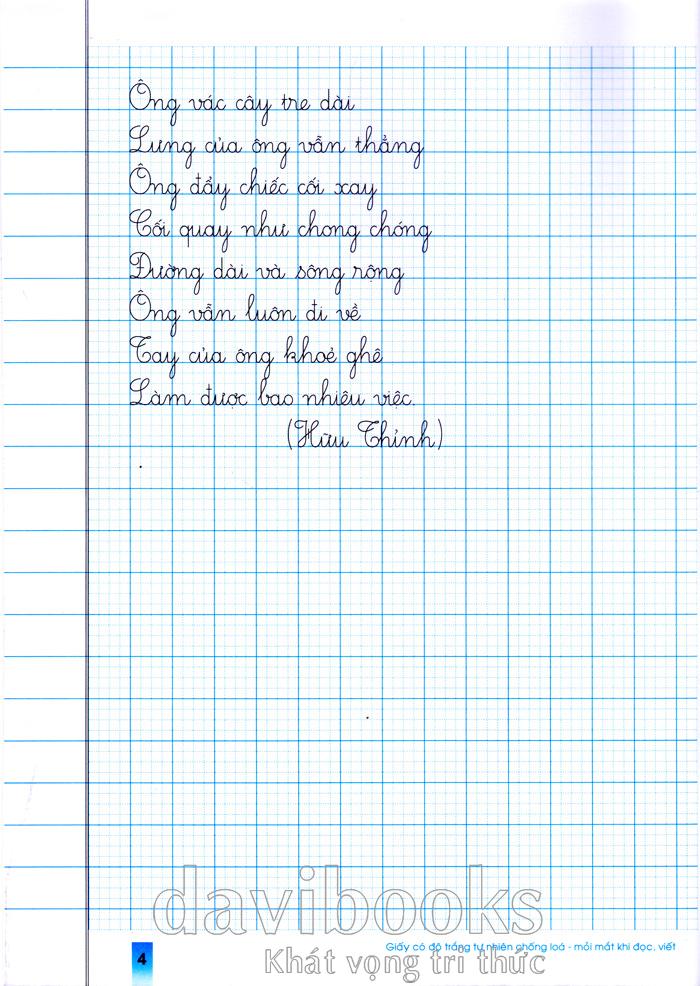 Ông vác cây tre dài
Lưng của ông vẫn thẳng
Ông đẩy chiếc cối xay
Cối quay như chong chóng
Đường dài và sông rộng
Ông vẫn luôn đi về
Tay của ông khoẻ ghê
Làm được bao nhiêu việc.
(Hữu Thỉnh)
davibooks
Giấy có độ trắng tự nhiên chống loá - mỏi mắt khi đọc, viết
4
Khát vọng tri thức